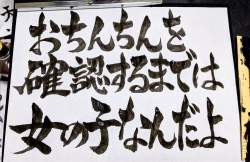 おちんちんを
確認するまでは
女の子なんだよ